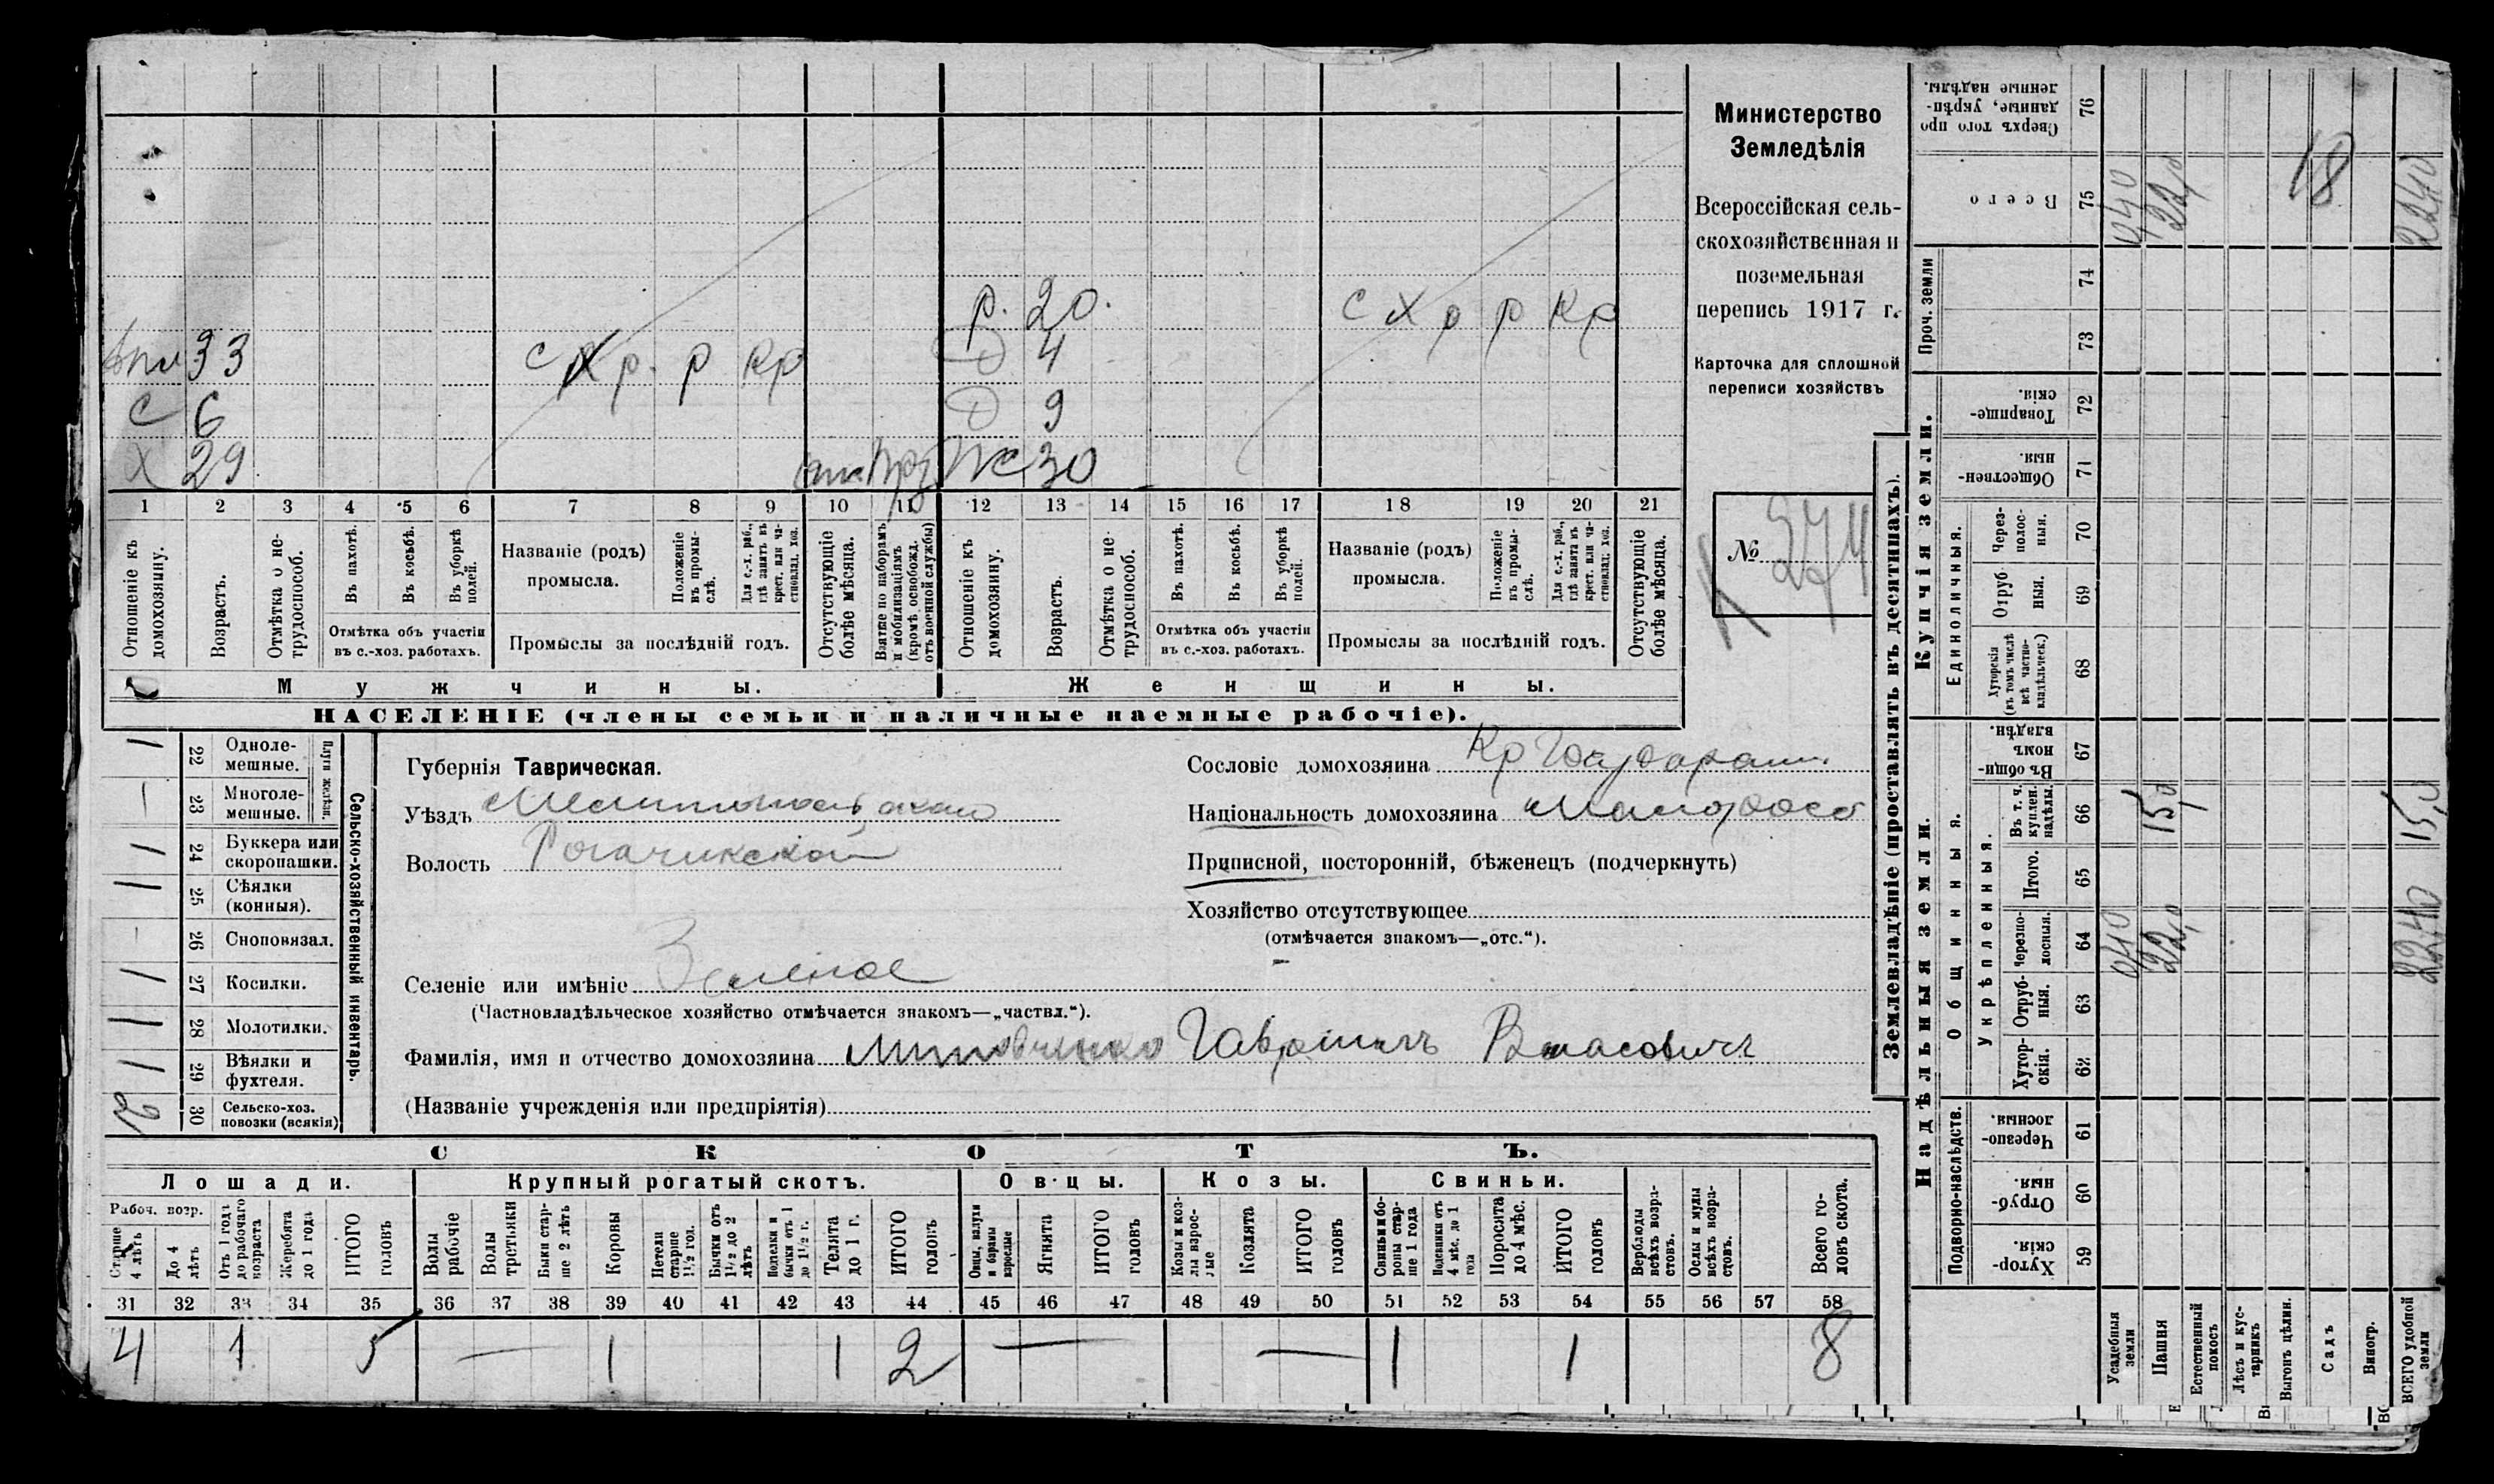 р. 20. с х р р Кр
33 с х р. р кр Д 4
С 6 Д 9
Х 29 Ж 30
1 2 3 4 5 6 7 8 9 10 11 12 13 14 15 16 17 18 19 20 21
Отношеніе къ домохозяину.
Возрастъ.
Отмѣтка о не-трудоспособ.
Въ пахотѣ.
Въ косьбѣ.
Въ уборкѣ полей.
Отмѣтка объ участіи
въ с.-хоз. работахъ.
Названіе (родъ)
промысла.
Положеніе въ промы-слѣ.
Для с.-х. раб., гдѣ занятъ въ крест. или ча-стновлад. хоз.
Промыслы за послѣдній годъ.
Отсутствующіе болѣе мѣсяца.
Взятые по наборамъ и мобилизаціямъ (кромѣ освобожд. отъ военной службы)
Отношеніе къ домохозяину.
Возрастъ.
Отмѣтка о не-трудоспособ.
Въ пахотѣ.
Въ косьбѣ.
Въ уборкѣ полей.
Отмѣтка объ участіи
въ с.-хоз. работахъ.
Названіе (родъ)
промысла.
Положеніе въ промы-слѣ.
Для с.-х. раб., гдѣ занята въ крест. или ча-стновлад. хоз.
Промыслы за послѣдній годъ.
Отсутствующіе болѣе мѣсяца.
Мужчины.
Женщины.
НАСЕЛЕНІЕ (члены семьи и наличные наемные рабочіе).
Министерство
Земледѣлія
Всероссійская сель-
скохозяйственная и
поземельная
перепись 1917 г.
Карточка для сплошной
переписи хозяйствъ
№ 274
Сельско-хозяйственный инвентарь.
Плуги желѣзн.
22 Одноле-мешные. 1
23 Многоле-мешные. —
24 Буккера или скоропашки. 1
25 Сѣялки (конныя). 1
26 Сноповязал. —
27 Косилки. 1
28 Молотилки. 1
29 Вѣялки и фухтеля. 1
30 Сельско-хоз. повозки (всякія) 2
Губернія Таврическая.
Уѣздъ Мелитопольскаго
Волость Рогачикской
Сословіе домохозяина Кр
Національность домохозяина Малоросс
Приписной, посторонній, бѣженецъ (подчеркнуть)
Хозяйство отсутствующее
(отмѣчается знакомъ—„отс.“).
Селеніе или имѣніе Зеленое
(Частновладѣльческое хозяйство отмѣчается знакомъ—„частвл.“).
Фамилія, имя и отчество домохозяина Гавріилъ Власовичъ
(Названіе учрежденія или предпріятія)
СКОТЪ.
Лошади. Крупный рогатый скотъ. Овцы. Козы. Свиньи.
Рабоч. возр.
Старше 4 лѣтъ
До 4 лѣтъ
Отъ 1 года до рабочаго возраста
Жеребята до 1 года
ИТОГО головъ
Волы рабочіе
Волы третьяки
Быки стар-ше 2 лѣтъ
Коровы
Нетели старше 1½ год.
Бычки отъ 1½ до 2 лѣтъ
Подтелки и бычки отъ 1 до 1½ г.
Телята до 1 г.
ИТОГО головъ
Овцы, валухи и бараны взрослые
Ягнята
ИТОГО головъ
Козы и коз-лы взрос-лые
Козлята
ИТОГО головъ
Свиньи и бо-ровы стар-ше 1 года
Подсвинки отъ 4 мѣс. до 1 года
Поросята до 4 мѣс.
ИТОГО головъ
Верблюды всѣхъ возра-стовъ.
Ослы и мулы всѣхъ возра-стовъ.
Всего го-ловъ скота.
31 32 33 34 35 36 37 38 39 40 41 42 43 44 45 46 47 48 49 50 51 52 53 54 55 56 57 58
4 1 5 — 1 1 2 — — 1 1 8
Землевладѣніе (проставлять въ десятинахъ).
Надѣльныя земли.
Купчія земли.
Проч. земли
Подворно-наслѣдств.
Общинныя.
Укрѣпленныя.
Единоличныя.
Хутор-скія. 59
Отруб-ныя. 60
Черезпо-лосныя. 61
Хутор-скія. 62
Отруб-ныя. 63
Черезпо-лосныя. 64
Итого. 65
Въ т. ч. куплен. надѣлы. 66
Въ общин-номъ владѣн. 67
Хуторскія (въ томъ числѣ всѣ частно-владѣльческ.) 68
Отруб-ныя. 69
Через-полос-ныя. 70
Обществен-ныя. 71
Товарище-скія. 72
73
74
Всего 75
Сверхъ того про-данные, укрѣп-ленные надѣлы. 76
Усадебныя земли 040 040
Пашня 22,0 15,0 22,0
Естественный покосъ
Лѣсъ и кус-тарникъ
Выгонъ цѣлин.
Садъ 18
Виногр.
ВСЕГО удобной земли 2240 15,0 2240